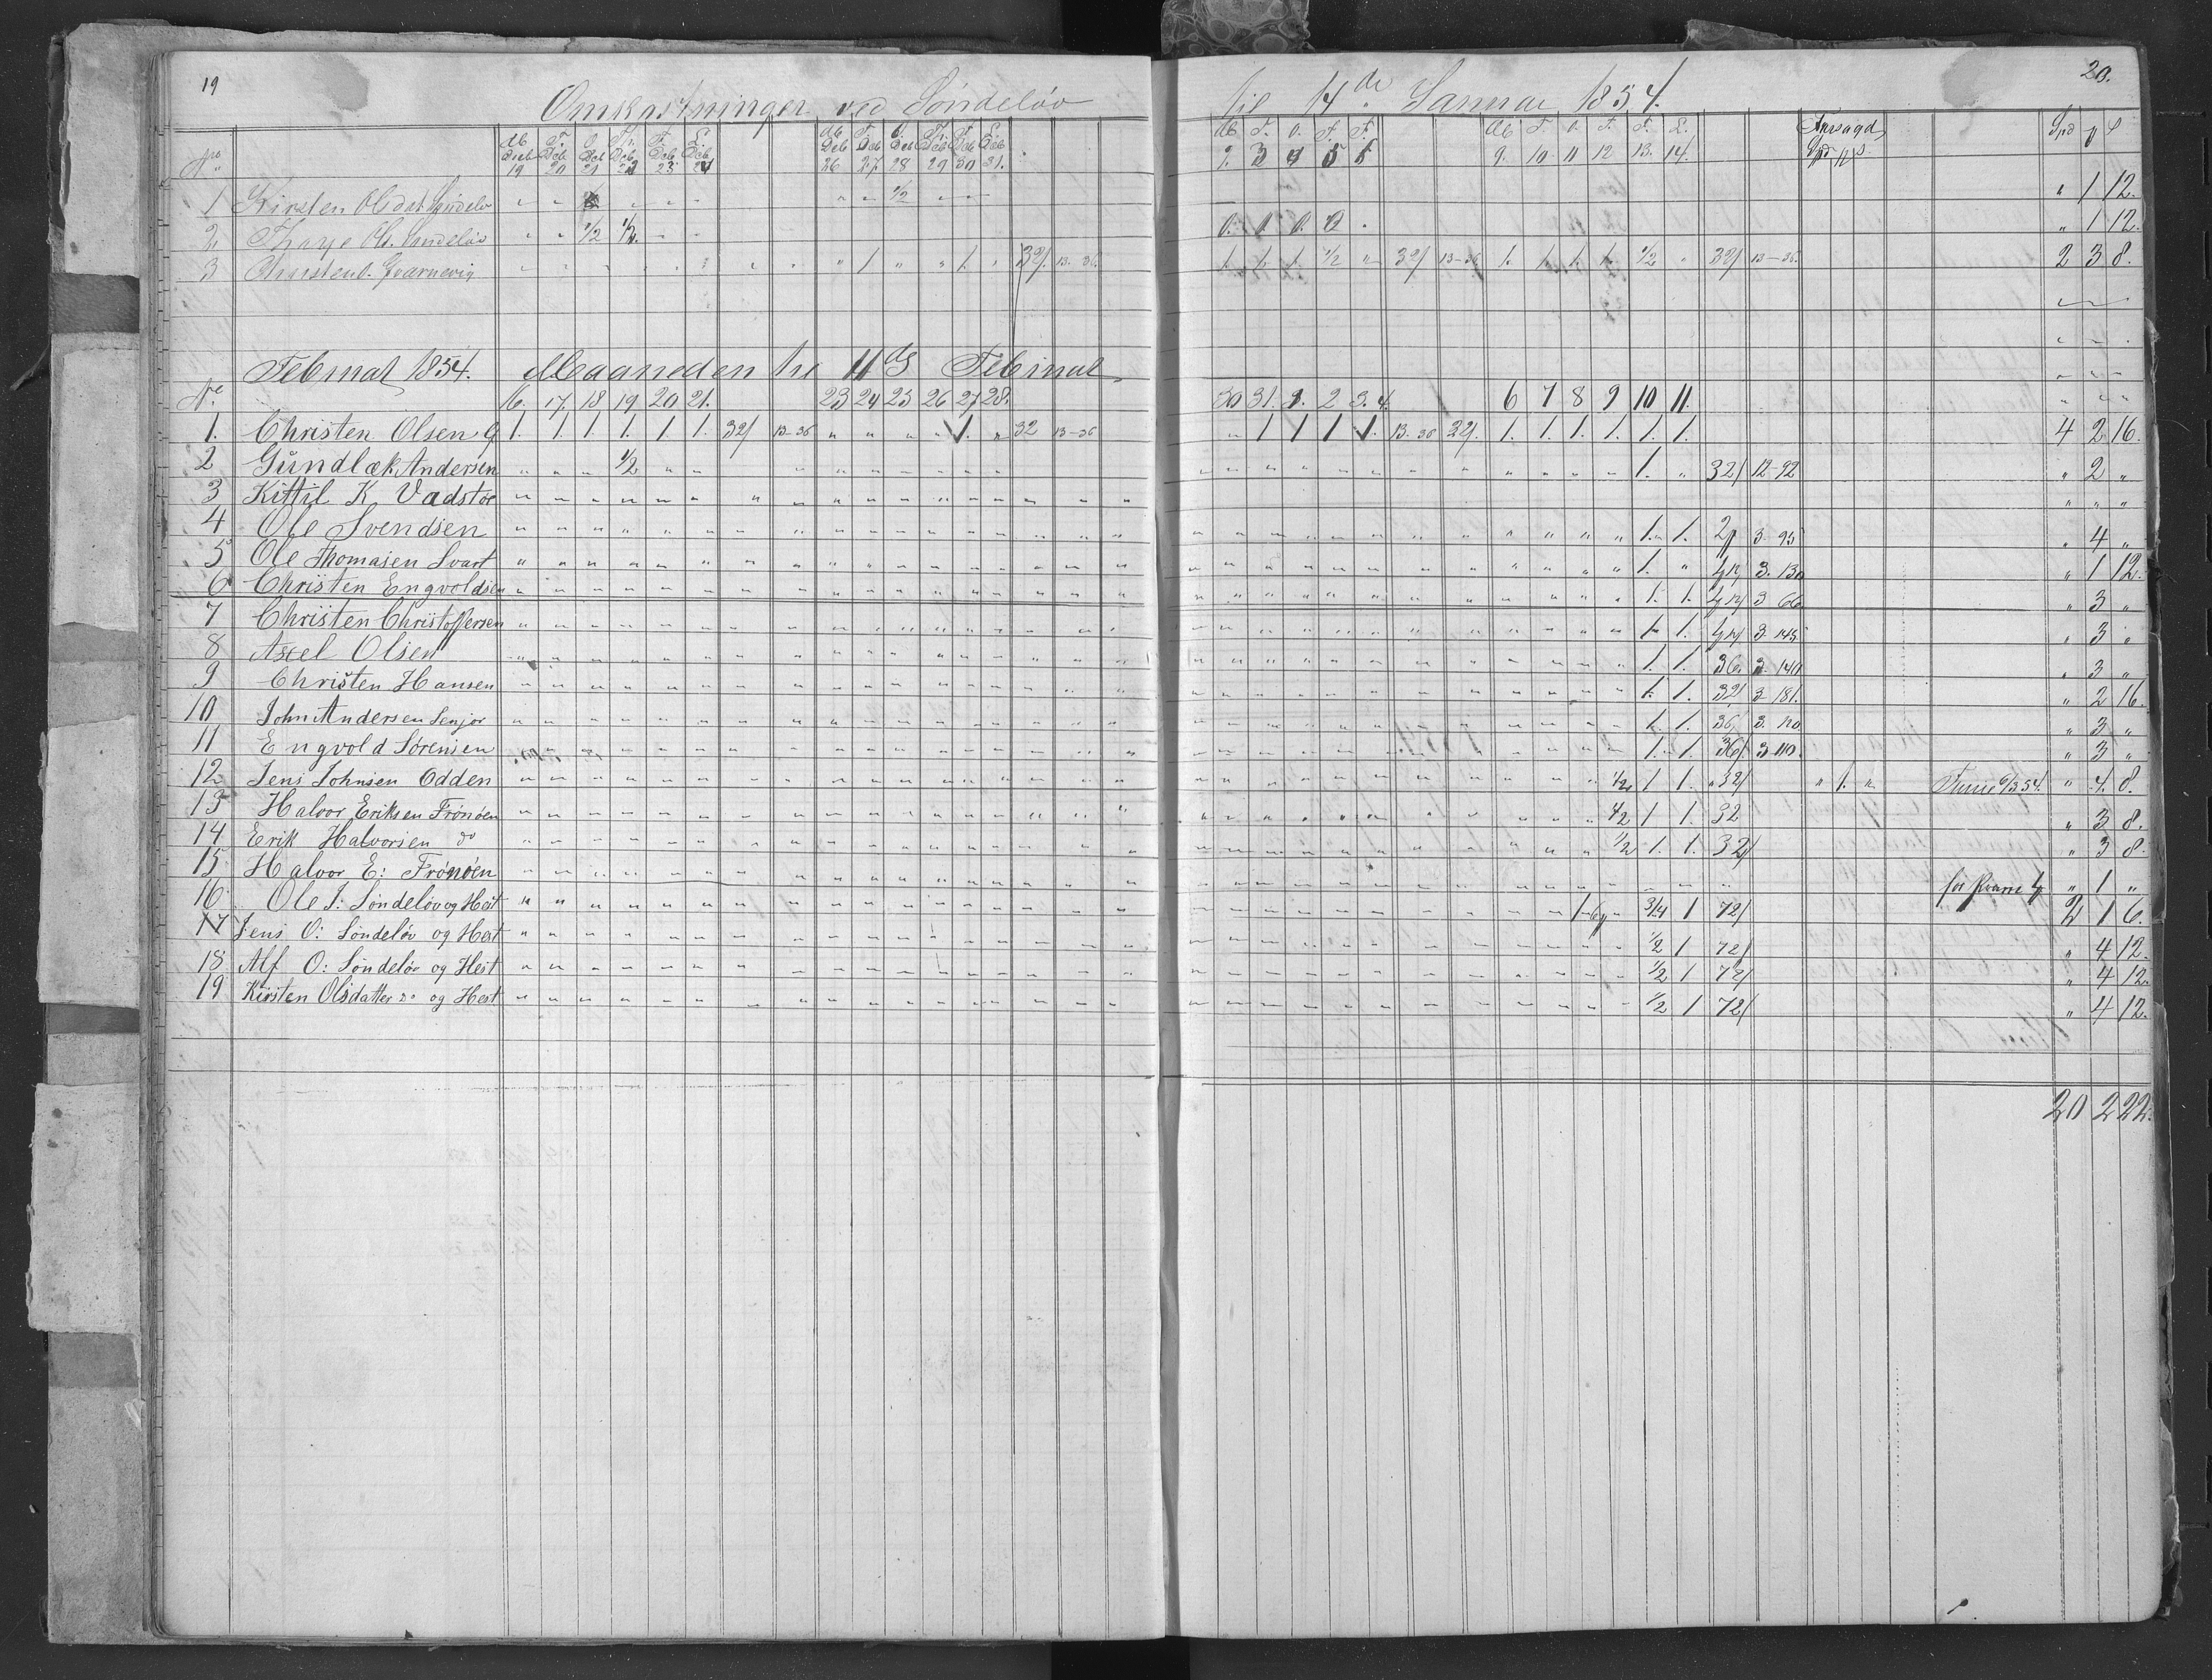 19 20.
Omkastninger ved Söndelöv til 14de Januar 1854.
No M Decb 19 T. Dcb 20 O. Dcb 21 Th. Dcb 22 F. Dcb 23. L. Dcb 24 M Deb 26 T. Deb 27. O. Deb 28 Th. Deb 29 F. Deb 30 L. Deb 31. M 2. T. 3 O. 4 T. 5 F. M 9. T. 10 O. 11 T. 12 F. 13. L. 14. Spd
1 Kirsten Olsdat Söndelöv " " " " " " " 1/2 " " " 1 12.
2 Ol. Söndelöv " " 1/2 1/2 " " 0. 0. 0. 0 " " 1 12.
3 " " " " " " " " " 1 " " 1. " 32/ 13-36. 1. 1. 1. 1/2 " 32/ 13-36 1. 1. 1. 1. 1/2 " 32/ 13-36. 2 3 8.
Februar 1854. Maaneden til 11de Februar
No. 16. 17. 18 19 20 21. 23 24 25 26 27 28. 30 31. 1. 2 3. 4. 6 7 8 9 10 11.
1. Christen Olsen G 1. 1. 1 1. 1. 1. 32/ 13-36 " " " " 1. " 32 13-36 " 1 1 1 1. 13. 36 32/. 1. 1. 1. 1. 1. 1. 4 2 16.
2 Gundlæk Andersen " " " 1/2 " " 1. " 32/ 12-92 " 2 "
3 Kittil K. Vadstøe " " " " " " " " "
4 Ole Svendsen " " " " " " 1. 1. 3 95 " 4 "
5 Ole Thomasen Svart " " " " " " 1. " 3. 130 " 1 12.
6 Christen Engvoldsen " " " " " " 1. 1. 3 66 " 3 "
7 Christen Christoffersen " " " " " " 1. 1. 3 145 " 3 "
8 Axel Olsen " " " " " " 1. 1. 36. 3 140 " 3 "
9 Christen Hansen " " " " " " 1. 1. 32/ 3 181. " 2 16.
10 John Andersen Senjor " " " " " " 1. 1. 36/ 3. 120. " 3 "
11 Engvold Sörensen " " " " " " 1. 1. 36/. 3 110. " 3 "
12 Jens Johnsen Odden " " " " " " 1/2 1 1. 32/ " 1. " 6/3 54. " 4. 8.
13 Halvor Eriksen Frönöen " " " " " " 1/2 1 1. 32 " 3 8.
14 Erik Halvorsen do " " " " " " 1/2 1. 1. 32/ " 3 8.
15 Halvor E: Frönöen " " " " " " for " 1 "
16 Ole J: Söndelöv og Hest " " " " " " 3/4 1 72/ 2 1 6.
17 Jens O: Söndelöv og Hest " " " " " " 1/2 1 72/ " 4 12.
18 Alf O: Söndelöv og Hest " " " " " " 1/2 1 72/ " 4 12.
19 Kirsten Olsdatter do og Hest " " " " " " 1/2 1 72/ " 4 12.
20 2 22.